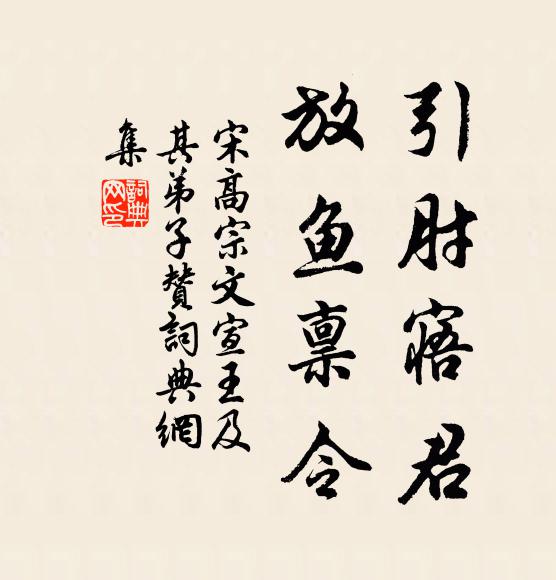 引肘寤君
放鱼禀令
宋高宗文宣王及
其弟子赞词典網
集
詞典網印